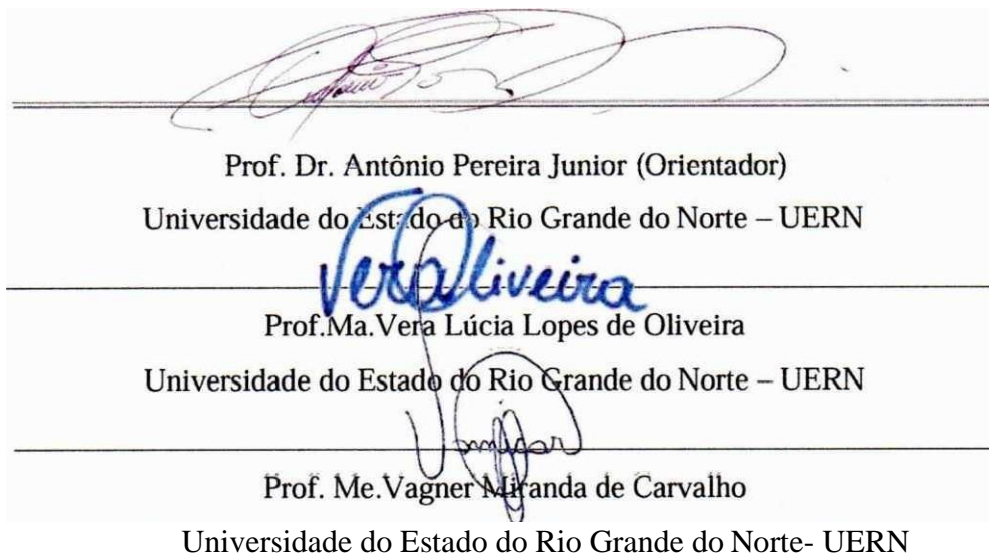 Prof. Dr. Antônio Pereira Junior (Orientador)
Universidade do Estado do Rio Grande do Norte – UERN
VeraOliveira
Prof.Ma.Vera Lúcia Lopes de Oliveira
Universidade do Estado do Rio Grande do Norte – UERN
Prof. Me.Vagner Miranda de Carvalho
Universidade do Estado do Rio Grande do Norte- UERN